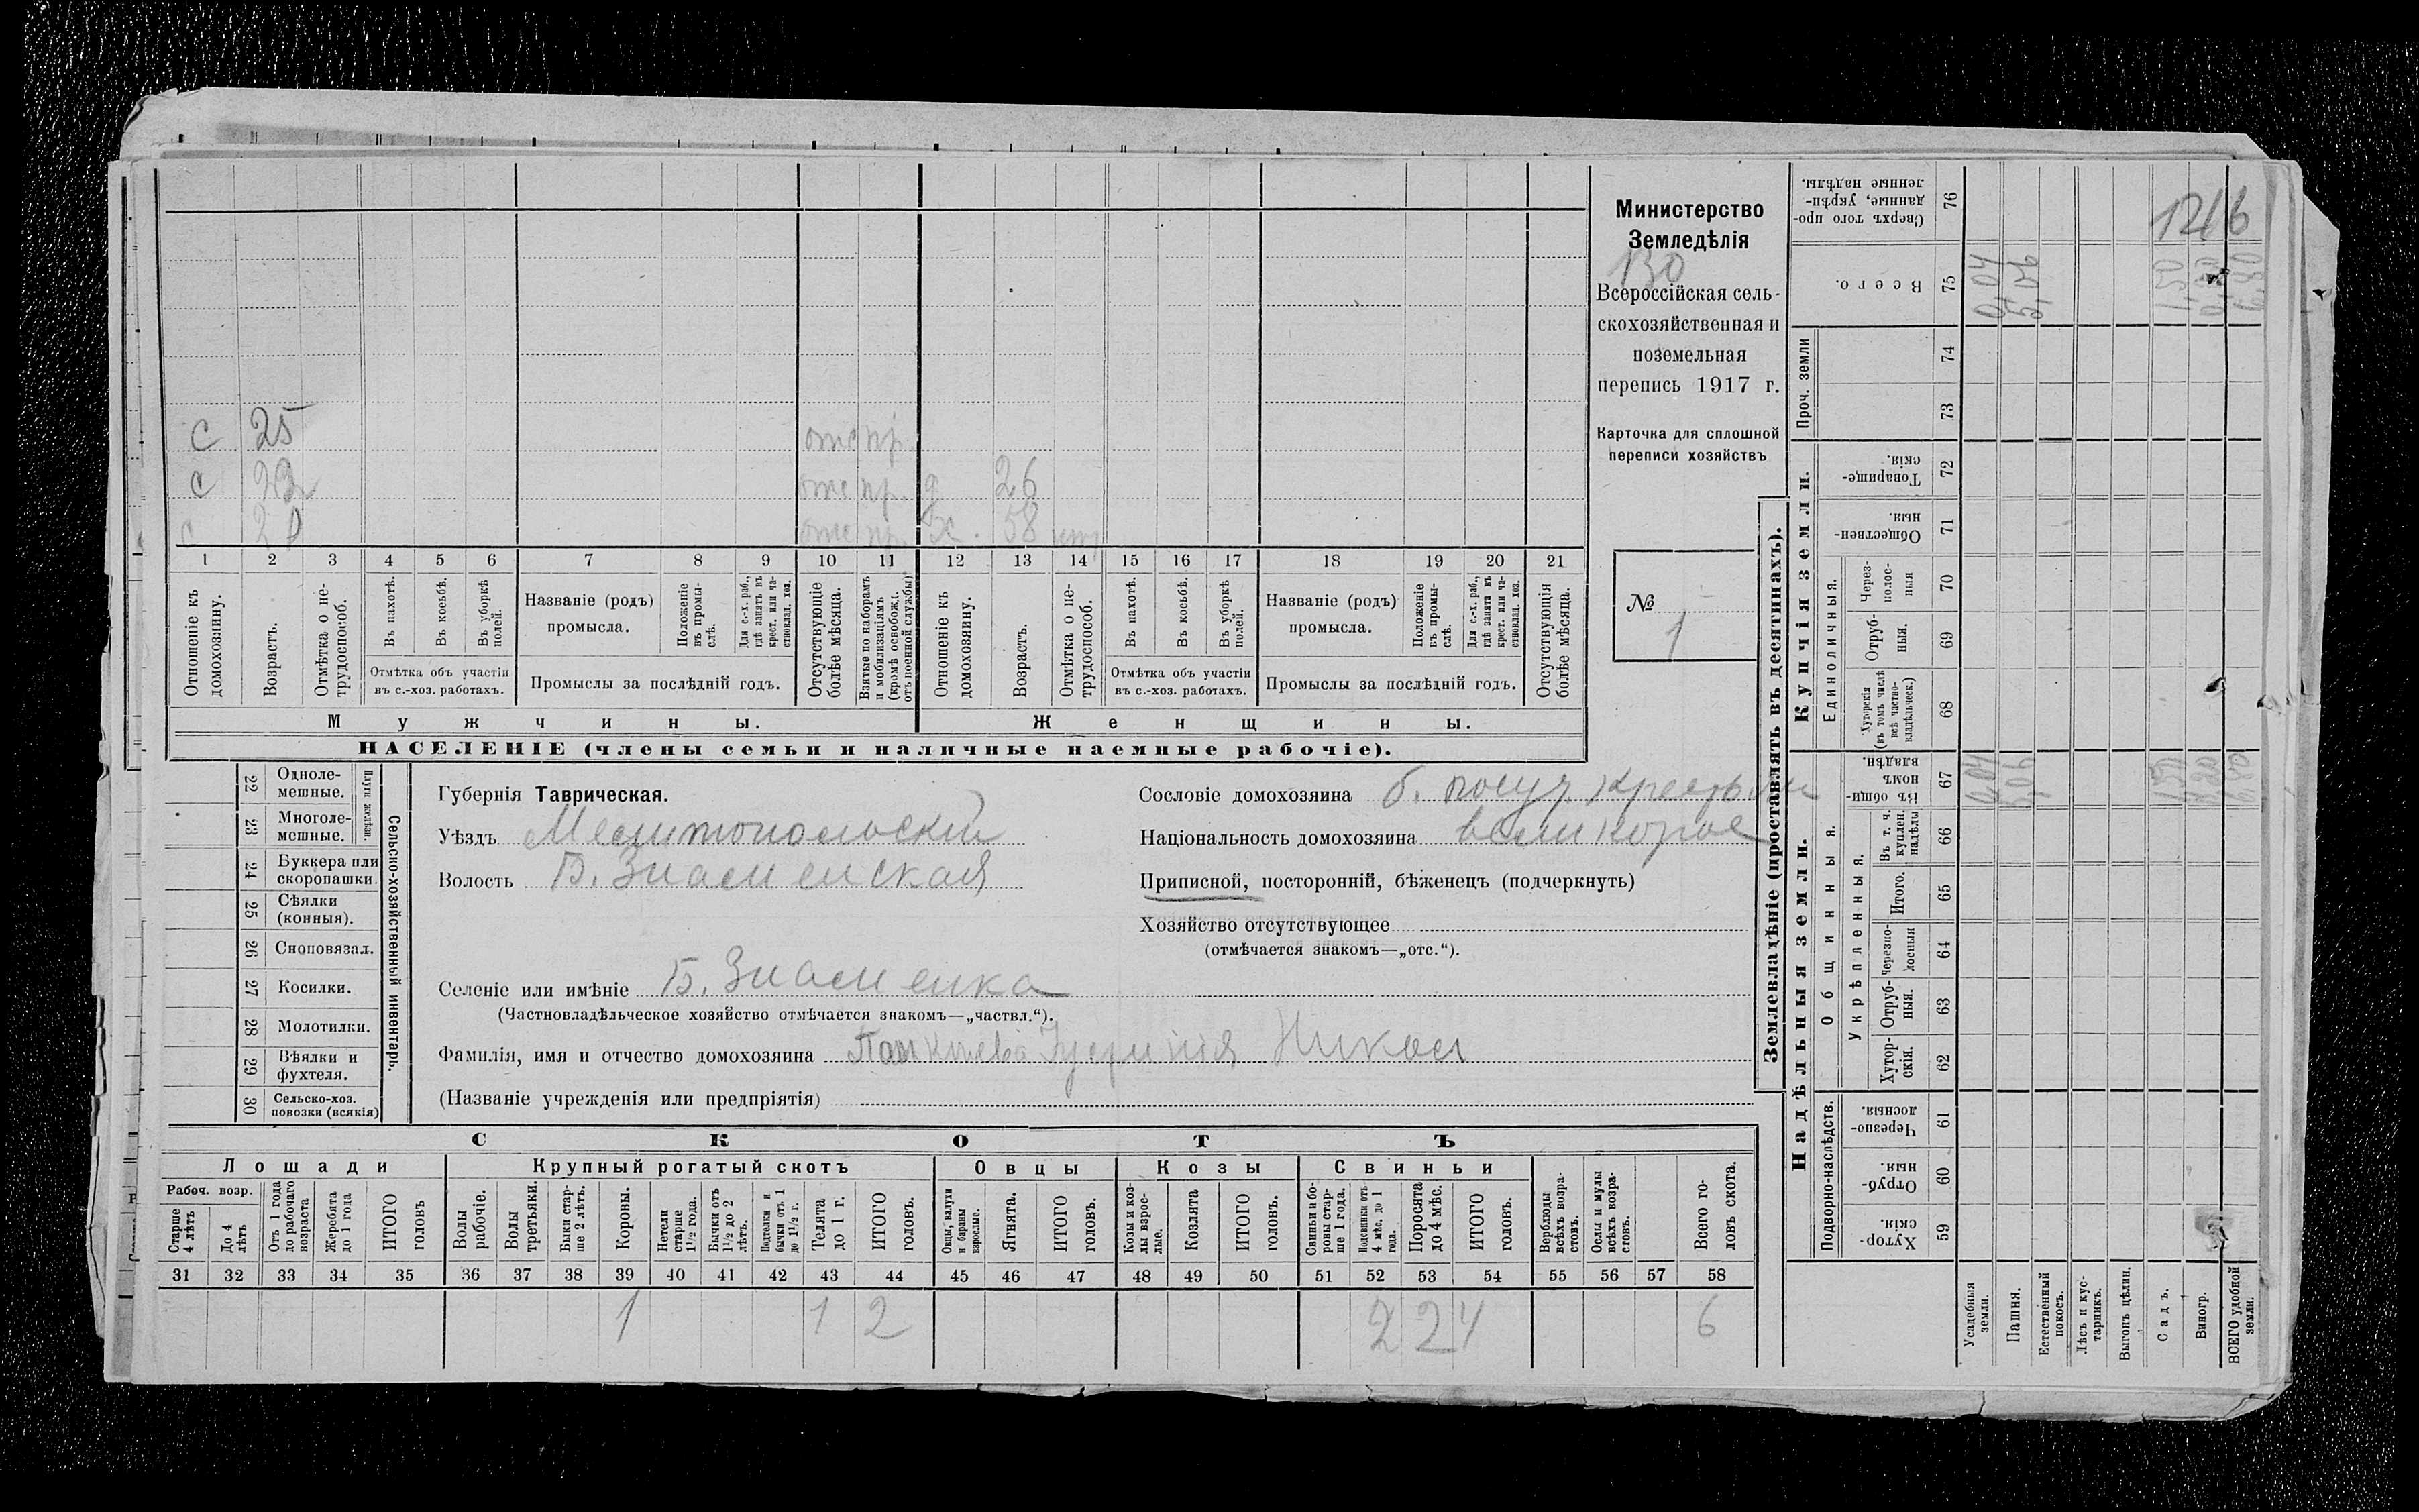 Министерство
Земледѣлія
130
Всероссійская сель-
скохозяйственная и
поземельная
перепись 1917 г.
Карточка для сплошной
переписи хозяйствъ
№
1
с 25 отс пр.
с отс пр. д 26
с отс пр. ж. 58
1 2 3 4 5 6 7 8 9 10 11 12 13 14 15 16 17 18 19 20 21
Отношеніе къ домохозяину.
Возрастъ.
Отмѣтка о не-трудоспособ.
Въ пахотѣ.
Въ косьбѣ.
Въ уборкѣ полей.
Отмѣтка объ участіи
въ с.-хоз. работахъ.
Названіе (родъ)
промысла.
Положеніе въ промы-слѣ.
Для с.-х. раб., гдѣ занятъ въ крест. или ча-стновлад. хоз.
Промыслы за послѣдній годъ.
Отсутствующіе болѣе мѣсяца.
Взятые по наборамъ и мобилизаціямъ (кромѣ освобожд. отъ военной службы)
Отношеніе къ домохозяину.
Возрастъ.
Отмѣтка о не-трудоспособ.
Въ пахотѣ.
Въ косьбѣ.
Въ уборкѣ полей.
Отмѣтка объ участіи
въ с.-хоз. работахъ.
Названіе (родъ)
промысла.
Положеніе въ промы-слѣ.
Для с.-х. раб., гдѣ занята въ крест. или ча-стновлад. хоз.
Промыслы за послѣдній годъ.
Отсутствующія болѣе мѣсяца.
Мужчины.
Женщины.
НАСЕЛЕНІЕ (члены семьи и наличные наемные рабочіе).
Сельско-хозяйственный инвентарь.
Плуги желѣзн.
22 Одноле-мешные.
23 Многоле-мешные.
24 Буккера или скоропашки.
25 Сѣялки (конныя).
26 Сноповязал.
27 Косилки.
28 Молотилки.
29 Вѣялки и фухтеля.
30 Сельско-хоз. повозки (всякія)
Губернія Таврическая.
Уѣздъ Мелитопольскій
Волость Б. Знаменская
Селеніе или имѣніе Б. Знаменка
(Частновладѣльческое хозяйство отмѣчается знакомъ—„частвл.“).
Фамилія, имя и отчество домохозяина Никол
(Названіе учрежденія или предпріятія)
Сословіе домохозяина б. госуд. крестьян
Національность домохозяина великорос
Приписной, посторонній, бѣженецъ (подчеркнуть)
Хозяйство отсутствующее
(отмѣчается знакомъ—„отс.“).
СКОТЪ
Лошади
Крупный рогатый скотъ
Овцы
Козы
Свиньи
Рабоч. возр.
Старше 4 лѣтъ
До 4 лѣтъ
Отъ 1 года до рабочаго возраста
Жеребята до 1 года
ИТОГО головъ
Волы рабочіе.
Волы третьяки.
Быки стар-ше 2 лѣтъ.
Коровы.
Нетели старше 1½ года.
Бычки отъ 1½ до 2 лѣтъ.
Подтелки и бычки отъ 1 до 1½ г.
Телята до 1 г.
ИТОГО головъ.
Овцы, валухи и бараны взрослые.
Ягнята.
ИТОГО головъ.
Козы и коз-лы взрос-лые.
Козлята
ИТОГО головъ.
Свиньи и бо-ровы стар-ше 1 года.
Подсвинки отъ 4 мѣс. до 1 года.
Поросята до 4 мѣс.
ИТОГО головъ.
Верблюды всѣхъ возра-стовъ.
Ослы и мулы всѣхъ возра-стовъ.
Всего го-ловъ скота.
31 32 33 34 35 36 37 38 39 40 41 42 43 44 45 46 47 48 49 50 51 52 53 54 55 56 57 58
1 1 2 2 2 4 6
Землевладѣніе (проставлять въ десятинахъ).
Надѣльныя земли.
Купчія земли.
Проч. земли
Подворно-наслѣдств.
Общинныя.
Укрѣпленныя.
Единоличныя.
Сверхъ того про-данные, укрѣп-ленные надѣлы. 76
Всего. 75
74
73
Товарище-скія. 72
Обществен-ныя. 71
Через-полос-ныя 70
Отруб-ныя. 69
Хуторскія (въ томъ числѣ всѣ частно-владѣльческ.) 68
Въ общин-номъ владѣн. 67
Въ т. ч. куплен. надѣлы 66
Итого. 65
Черезпо-лосныя 64
Отруб-ныя. 63
Хутор-скія. 62
Черезпо-лосныя. 61
Отруб-ныя. 60
Хутор-скія. 59
Усадебныя земли.
Пашня.
Естественный покосъ.
Лѣсъ и кус-тарникъ.
Выгонъ цѣлин.
Садъ.
Виногр.
ВСЕГО удобной земли.
0,04
5,06
1,50
0,20
6,80
1216